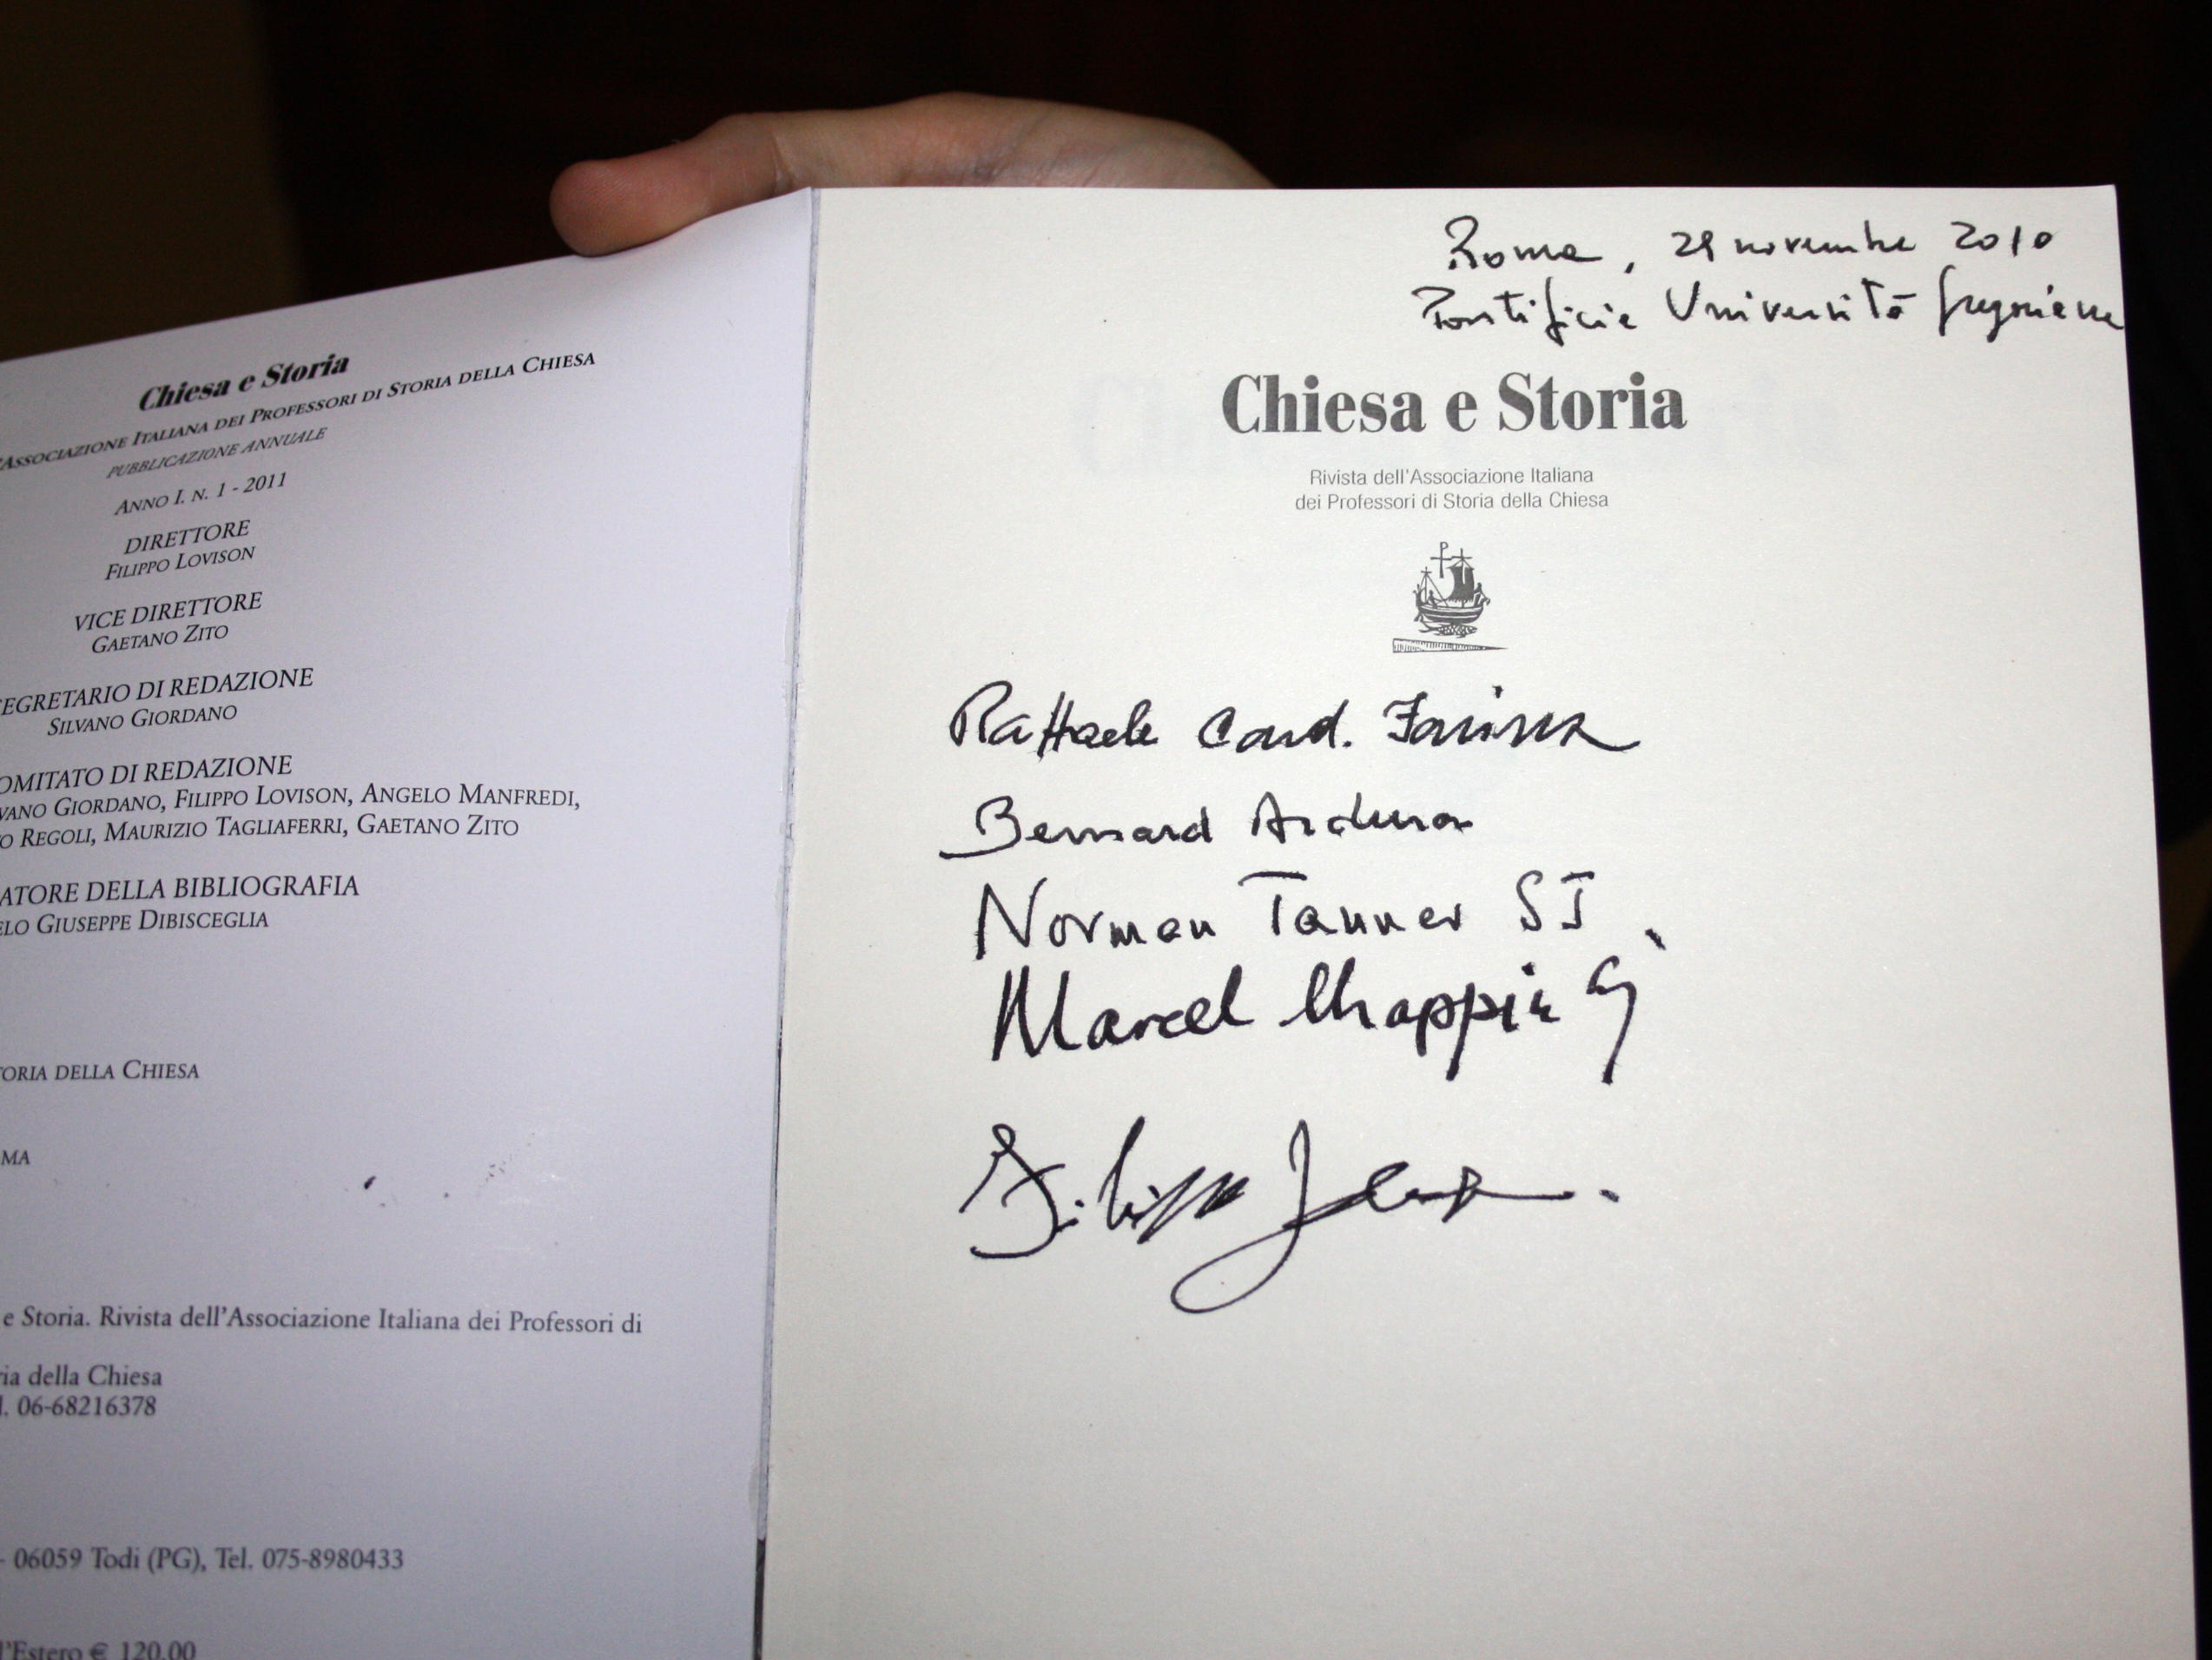 Chiesa e Storia
Associazione Italiana dei Professori di Storia della Chiesa
pubblicazione annuale
Anno I. n. 1 - 2011
DIRETTORE
Filippo Lovison
VICE DIRETTORE
Gaetano Zito
EGRETARIO DI REDAZIONE
Silvano Giordano
OMITATO DI REDAZIONE
vano Giordano, Filippo Lovison, Angelo Manfredi,
o Regoli, Maurizio Tagliaferri, Gaetano Zito
ATORE DELLA BIBLIOGRAFIA
elo Giuseppe Dibisceglia
toria della Chiesa
ma
e Storia. Rivista dell'Associazione Italiana dei Professori di
ria della Chiesa
l. 06-68216378
- 06059 Todi (PG), Tel. 075-8980433
l'Estero € 120,00
Roma, 29 novembre 2010
Pontificia Università Gregoriana
Chiesa e Storia
Rivista dell'Associazione Italiana
dei Professori di Storia della Chiesa
Raffaele Card. Farina
Bernard Ardura
Norman Tanner SJ
Marcel Chappin SJ
Filippo Lovison